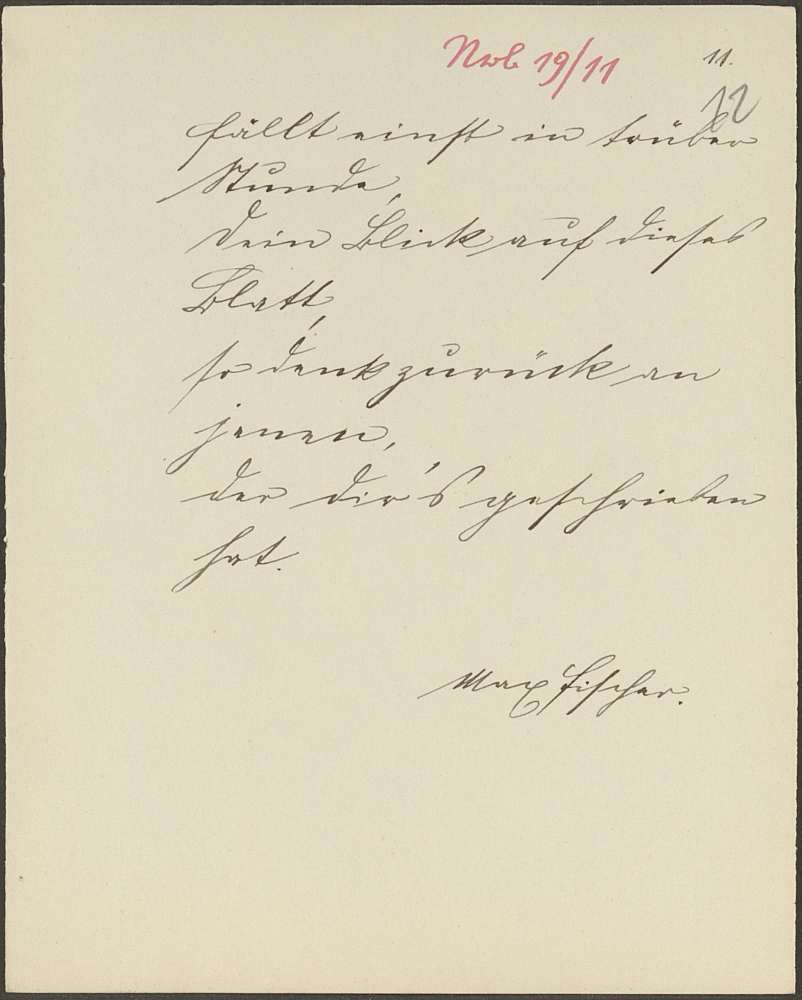 Nrb 19/11
11.
12
fällt einst in trüber
Stunde,
dein Blick auf dieses
Blatt,
so denk zurück an
jenen,
der dir's geschrieben
hat.
Max Fischer.